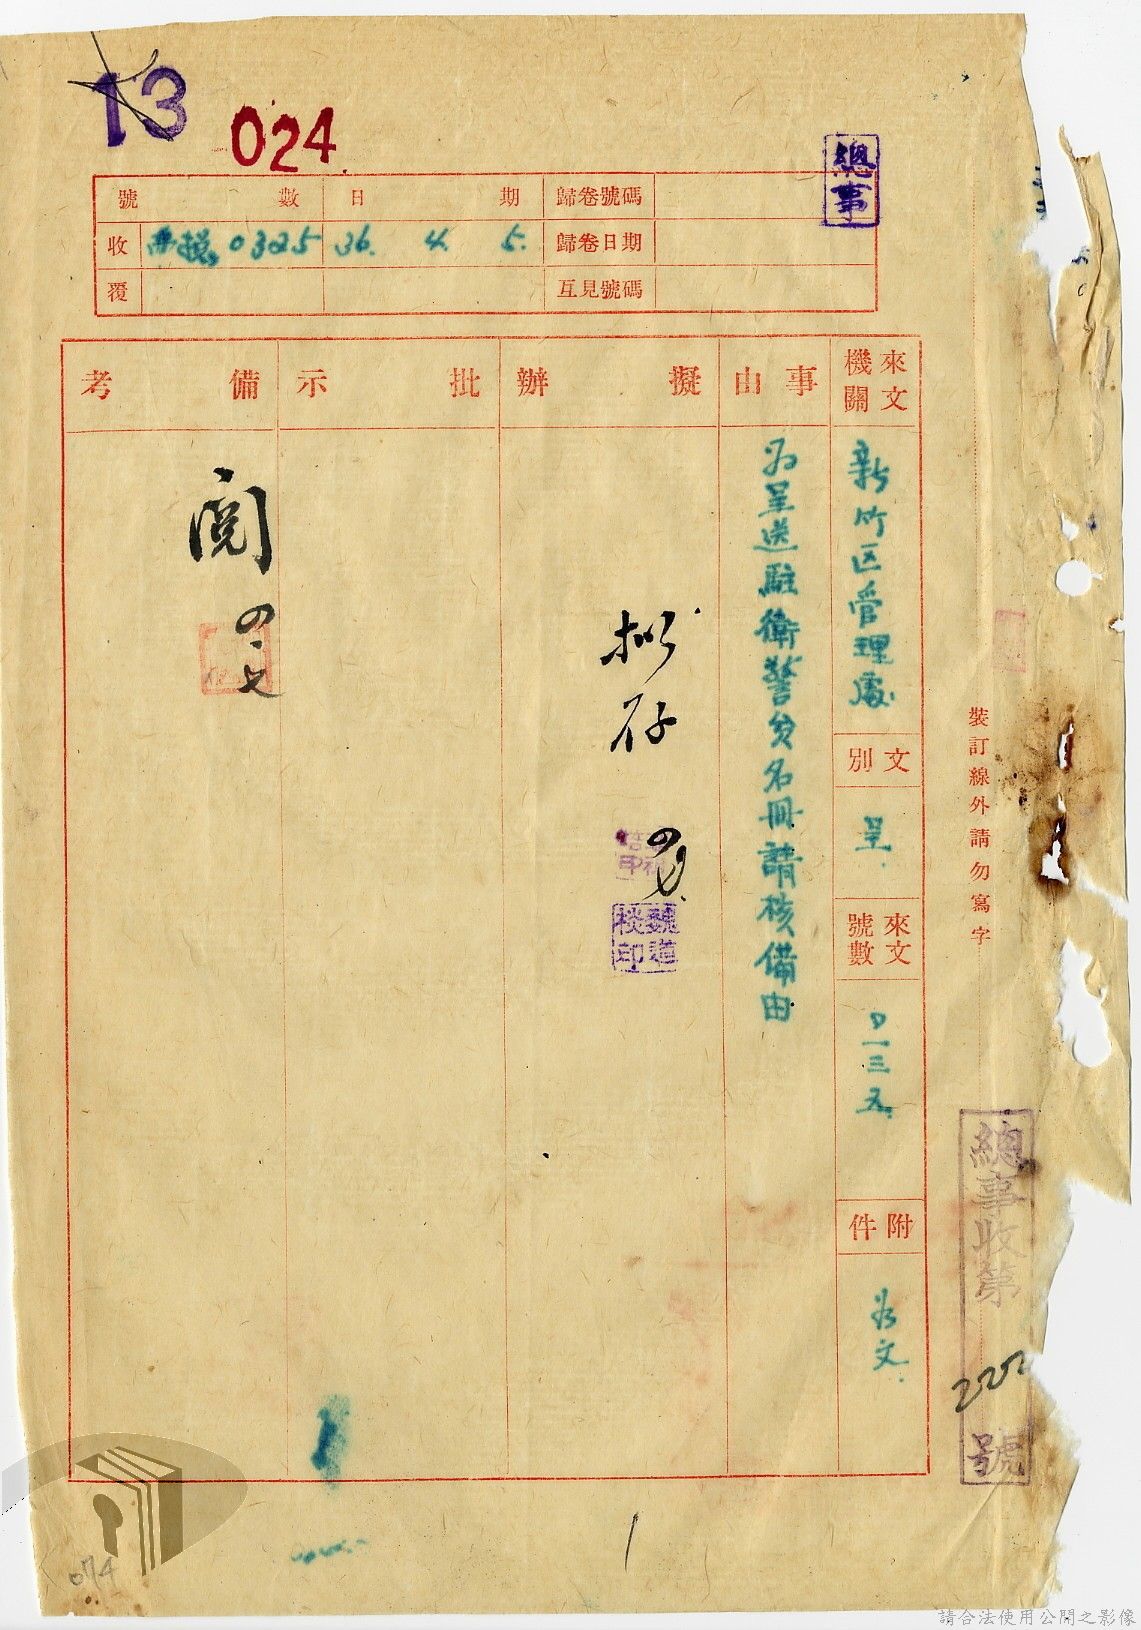 13
024
總事
號數 日期 歸卷號碼
收 0325 36. 4. 5. 歸卷日期
覆 互見號碼
來文機關
新竹区管理處
文別
呈
來文號數
一三五
附件
文
事由
為呈送駐衛警員名冊請核備由
擬辦
拟存
魏道
印
批示
備考
閱
裝訂線外請勿寫字
總事收第
222
號
074
請合法使用公開之影像